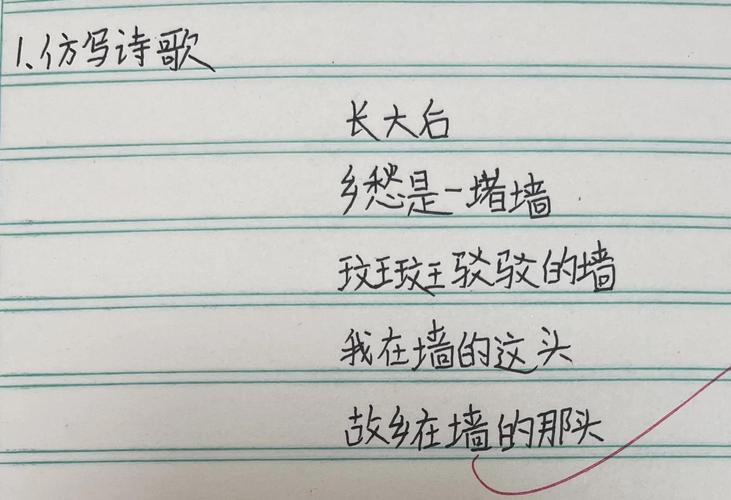 1、仿写诗歌
长大后
乡愁是一堵墙
斑斑驳驳的墙
我在墙的这头
故乡在墙的那头